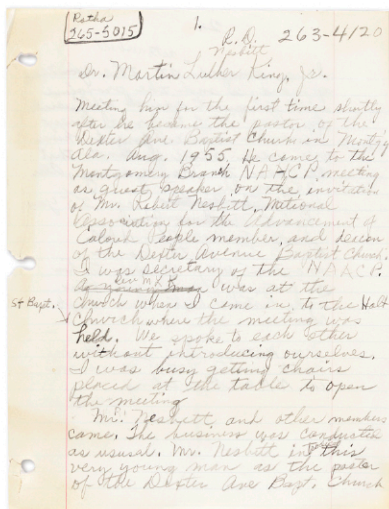 Ratha
265-5015
1.
R. D. 263-4120
Nesbitt
Dr. Martin Luther King, Jr.
Meeting him for the first time shortly
after he became the pastor of the
Dexter Ave Baptist Church in Montgy
Ala. Aug. 1955. He came to the
Montgomery Branch NAACP meeting
as guest speaker on the invitation
of Mr. Robert Nesbitt, National
Association for the Advancement of
Colored People member, and deacon
of the Dexter Avenue Baptist Church.
I was secretary of the NAACP.
a young man was at the
St Bapt. church where I came in to the Halt
Church where the meeting was
held. We spoke to each other
without introducing ourselves.
I was busy getting chairs
placed at the table to open
the meeting
Mr. Nesbitt and other members
came. The business was conducted
as ususal. Mr. Nesbitt this
very young man as the pastor
of the Dexter Ave Bapt. Church